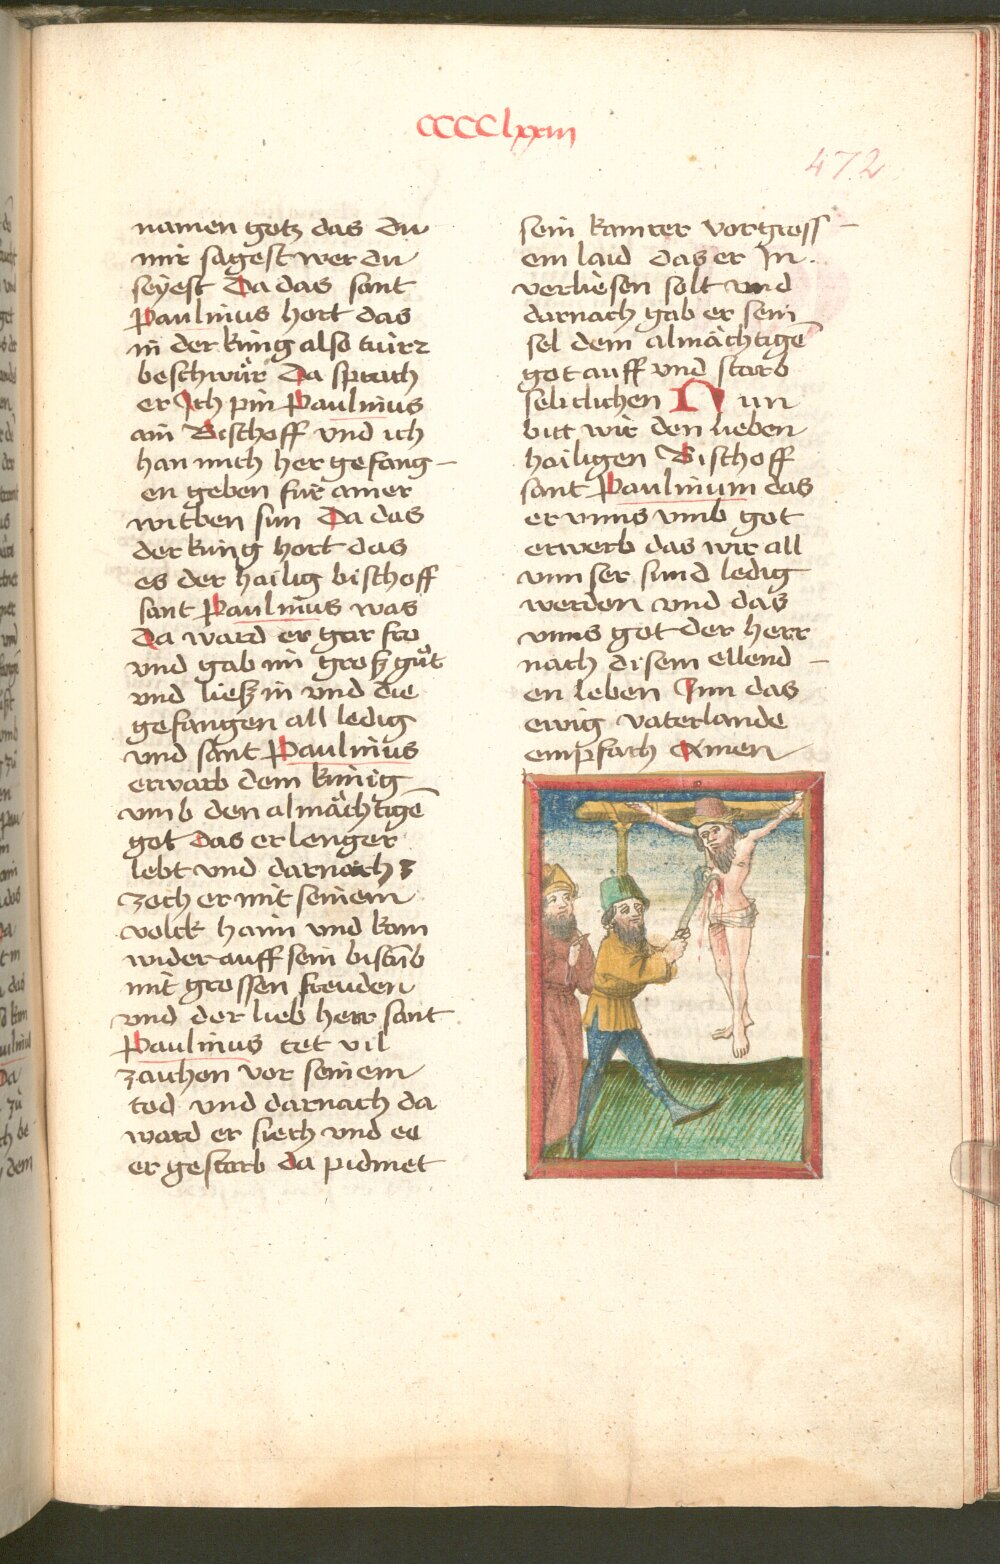 CCCClxxiii
472
namen gotz das du
mir sagest wer du
seyest Da das sant
Paulinus hort das
in der king also tuirr
beschwür Da sprach
er Ich pin Paulinus
ain Bischoff vnd ich
han mich her gefang-
en geben für ainer
witben sun Da das
der kinig hort das
es der hailig bischoff
sant Paulinus was
Da ward er gar fro
vnd gab im groß gůt
vnd ließ in vnd die
gefangen all ledig
vnd sant Paulinus
erwarb dem kinig
vmb den almächtigē
got das er lenger
lebt vnd darnoch
zoch er mit seinem
volck haim vnd kom
wider auff sein bistūb
mit grossen freuden
vnd der lieb herr sant
Paulinus tet vil
zaichen vor seinem
tod vnd darnach da
ward er siech vnd ee
er gestarb da pidmet
sein kamrer vor gross
em laid das er In
verliesen solt vnd
darnach gab er sein
sel dem almächtigē
got auff vnd starb
seliclichen Nun
bitt wir den lieben
hailigen Bischoff
sant Paulinum das
er vnns vmb got
erwerb das wir all
vnnser sund ledig
werden vnd das
vnns got der herr
nach disem ellend-
en leben Inn das
ewig vaterlande
empfach Amen